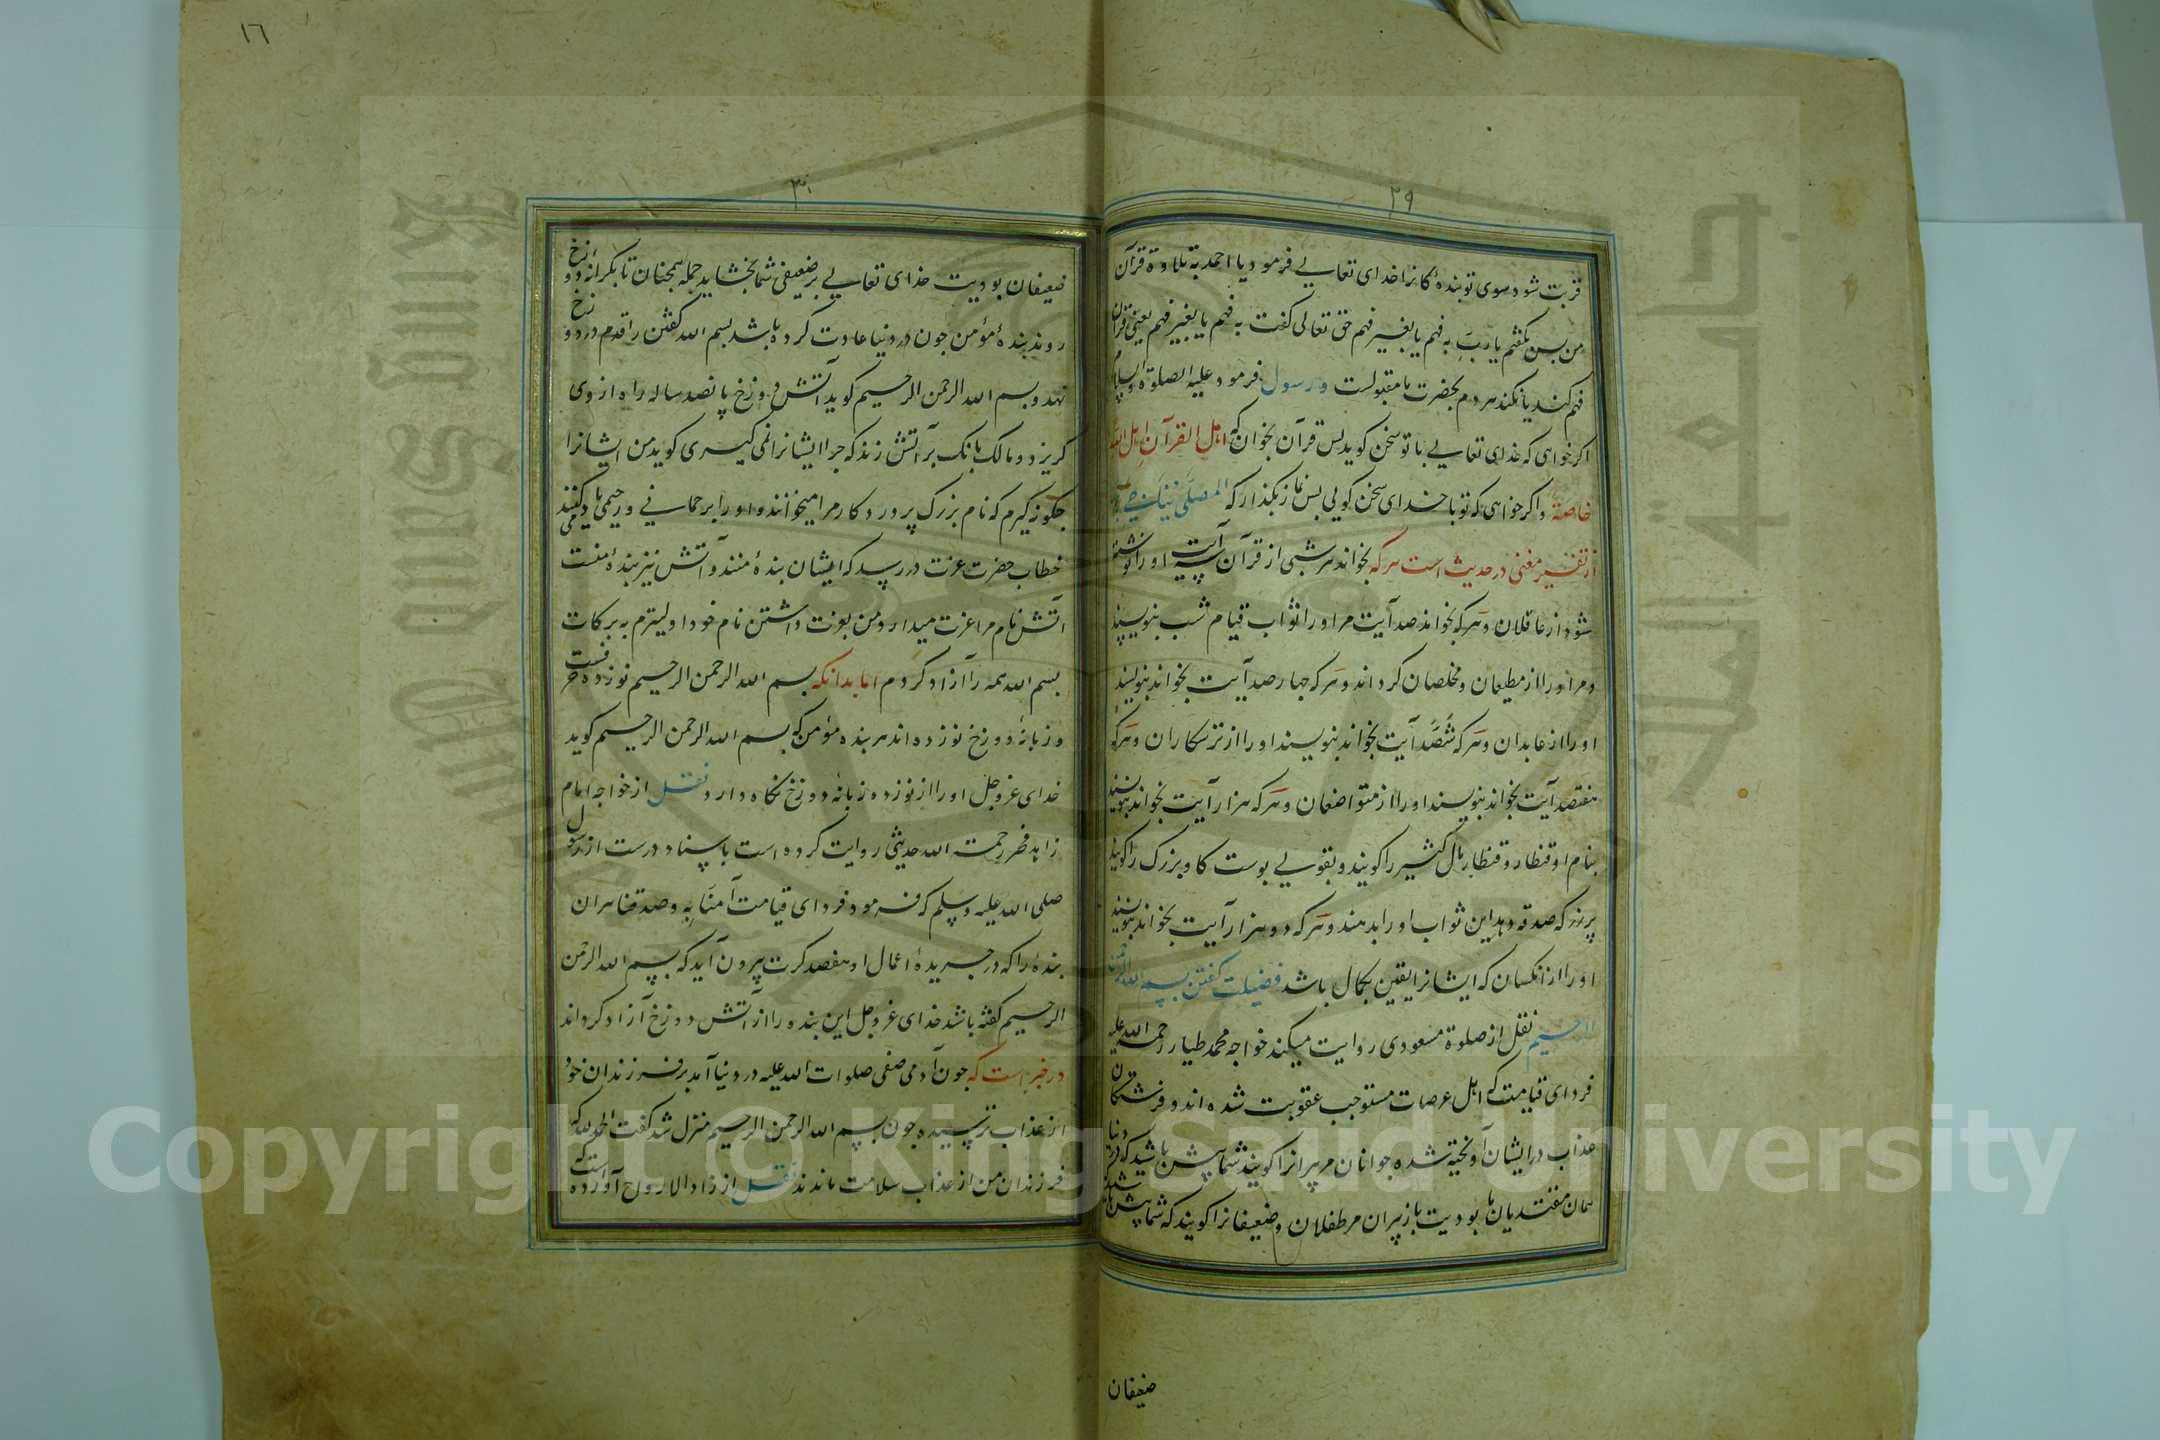 ١٦
٢٩
قربت شود سوی تو بندهٔ کانرا خدای تعالی فرمود یا احمد به تلاوة قرآن
من بس بگفتم یا رب به فهم یا بغیر فهم حق تعالی گفت به فهم یا بغیر فهم یعنی قرآن
فهم کند یا نکند مردم بحضرت ما مقبولست و رسول فرمود علیه الصلوة والسلام
اگر خواهی که خدای تعالی با تو سخن گوید بس قرآن بخوان که اهل القرآن اهل الله
خاصة و اگر خواهی که تو با خدای سخن گویی بس نماز بگذار که المصلی
از تفسیر مغنی در حدیث است هرکه بخواند هر شبی از قرآن سه آیت او را نوشته
شود از عاقلان و هرکه بخواند صد آیت مر او را ثواب قیام شب بنویسند
و مر او را از مطیعان و مخلصان گردانند و هرکه چهار صد آیت بخواند بنویسند
او را از عابدان و هرکه ششصد آیت بخواند بنویسند او را از ترسکاران و هرکه
هفتصد آیت بخواند بنویسند او را از متواضعان و هرکه هزار آیت بخواند بنویسند
بنام او قنطار و قنطار مال کثیر را گویند و بقولی بوست کاو بزرک را گویند
پر زر که صدقه دهد این ثواب او را بدهند و هرکه دو هزار آیت بخواند بنویسند
او را از انکسان که ایشانرا یقین بکمال باشد فضیلت گفتن بسم الله الرحمن
الرحیم نقل از صلوة مسعودی روایت میکند خواجه محمد طیار رحمة الله علیه
فردای قیامت که اهل عرصات مستوجب عقوبت شده اند و فرشتکان
عذاب در ایشان آویخته شده جوانان مر پیرانرا کویند شما پیش باشید که در دنیا
همان مقتدیان ما بودیت باز پیران مر طفلان و ضعیفانرا کویند که شما پیش باشید
ضعیفان
٣٠
ضعیفان بودیت خدای تعالی بر ضعیفی شما بخشاید جمله همچنان تا بکرانه دوزخ
روند بندهٔ مؤمن چون در دنیا عادت کرده باشد بسم الله گفتن را قدم در دوزخ
نهد و بسم الله الرحمن الرحیم کوید آتش دوزخ پانصد ساله راه از وی
کریزد و مالک بانک بر آتش زند که چرا ایشانرا نمی کیری کوید من ایشانرا
چکونه کیرم که نام بزرک پروردکار مرا میخوانند و او را برحمانی و رحیمی یاد میکنند
خطاب حضرت عزت در رسد که ایشان بندهٔ منند و آتش نیز بندهٔ منست
آتش نام مرا عزت میدارد من بعزت داشتن نام خود اولیترم به برکات
بسم الله همه را آزاد کردم اما بدانکه بسم الله الرحمن الرحیم نوزده حرفست
و زبانهٔ دوزخ نوزده اند هر بنده مؤمن که بسم الله الرحمن الرحیم کوید
خدای عز و جل او را از نوزده زبانهٔ دوزخ نکاه دارد نقل از خواجه امام
زاهد فخر رحمة الله حدیثی روایت کرده است باسناد درست از رسول
صلی الله علیه وسلم که فرمود فردای قیامت آمنا به وصدقنا هران
بندهٔ را که در جریدهٔ اعمال او هفصد کرت بیرون آید که بسم الله الرحمن
الرحیم گفته باشد خدای عز و جل این بنده را از آتش دوزخ آزاد کرداند
در خبر است که چون آدمی صفی صلوات الله علیه در دنیا آمد بر فرزندان خود
از عذاب ترسیده چون بسم الله الرحمن الرحیم منزل شد گفت الحمد لله که
فرزندان من از عذاب سلامت ماندند نقل از زاد الارواح آورده است که
Copyright © King Saud University
King Saud University